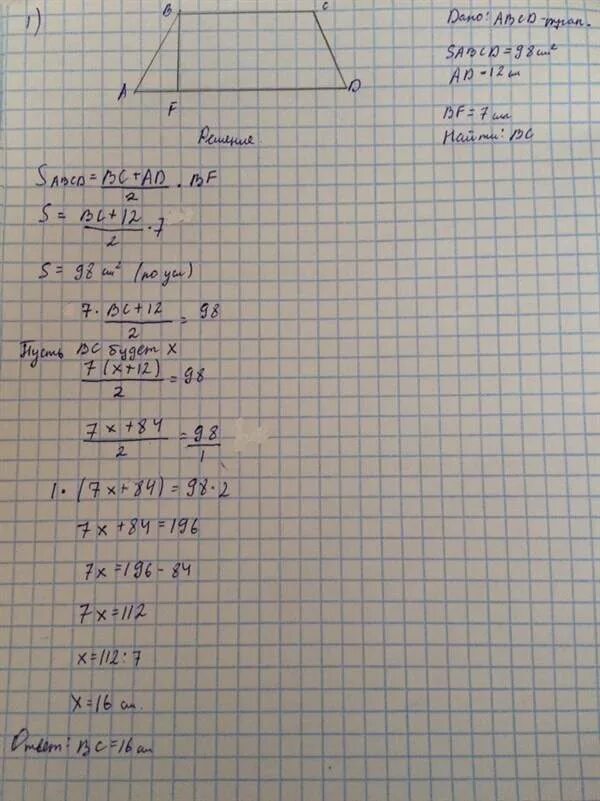 1)
B C
A F D
Дано: ABCD-трап.
SABCD=98см²
AD-12см
BF=7см
Найти: BC
Решение
SABCD=BC+AD/2 · BF
S=BC+12/2·7
S=98см² (по усл)
7·BC+12/2=98
Пусть BC будет x
7(x+12)/2=98
7x+84/2=98/1
1·(7x+84)=98·2
7x+84=196
7x=196-84
7x=112
x=112:7
x=16 см.
Ответ: BC=16см